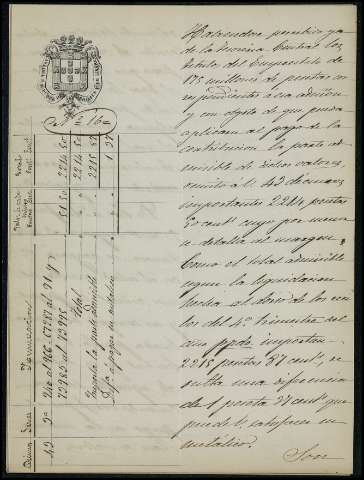 Habiéndose percibido ya
de la Tesorería Central los
títulos del Empréstito de
175 millones de pesetas co-
rrespondientes a esa
y con objeto de que pueda
aplicar al pago de la
contribución la parte ad-
misible de dichos valores,
remito a V. 43 décimos
importantes 2214 pesetas
50 cent cuyo por menor
se detalla al margen.
Como el total admisible
segun la liquidacion
hecha el dorso de los
del 4º trimestre del
año ppdo importa
2215 pesetas 87 cent, re-
sulta una diferencia
de 1 peseta 37 cent que
puede V. satisfacer en
metálico.
Son
Décimos Series Numeracion
43 2ª
240 al 966 - 67287 al 91 y
73983 al 73995
51 50 2214 50
Total 2214 50
Importa la parte admisible 2215 87
Dif a pagar en metálico 1 37